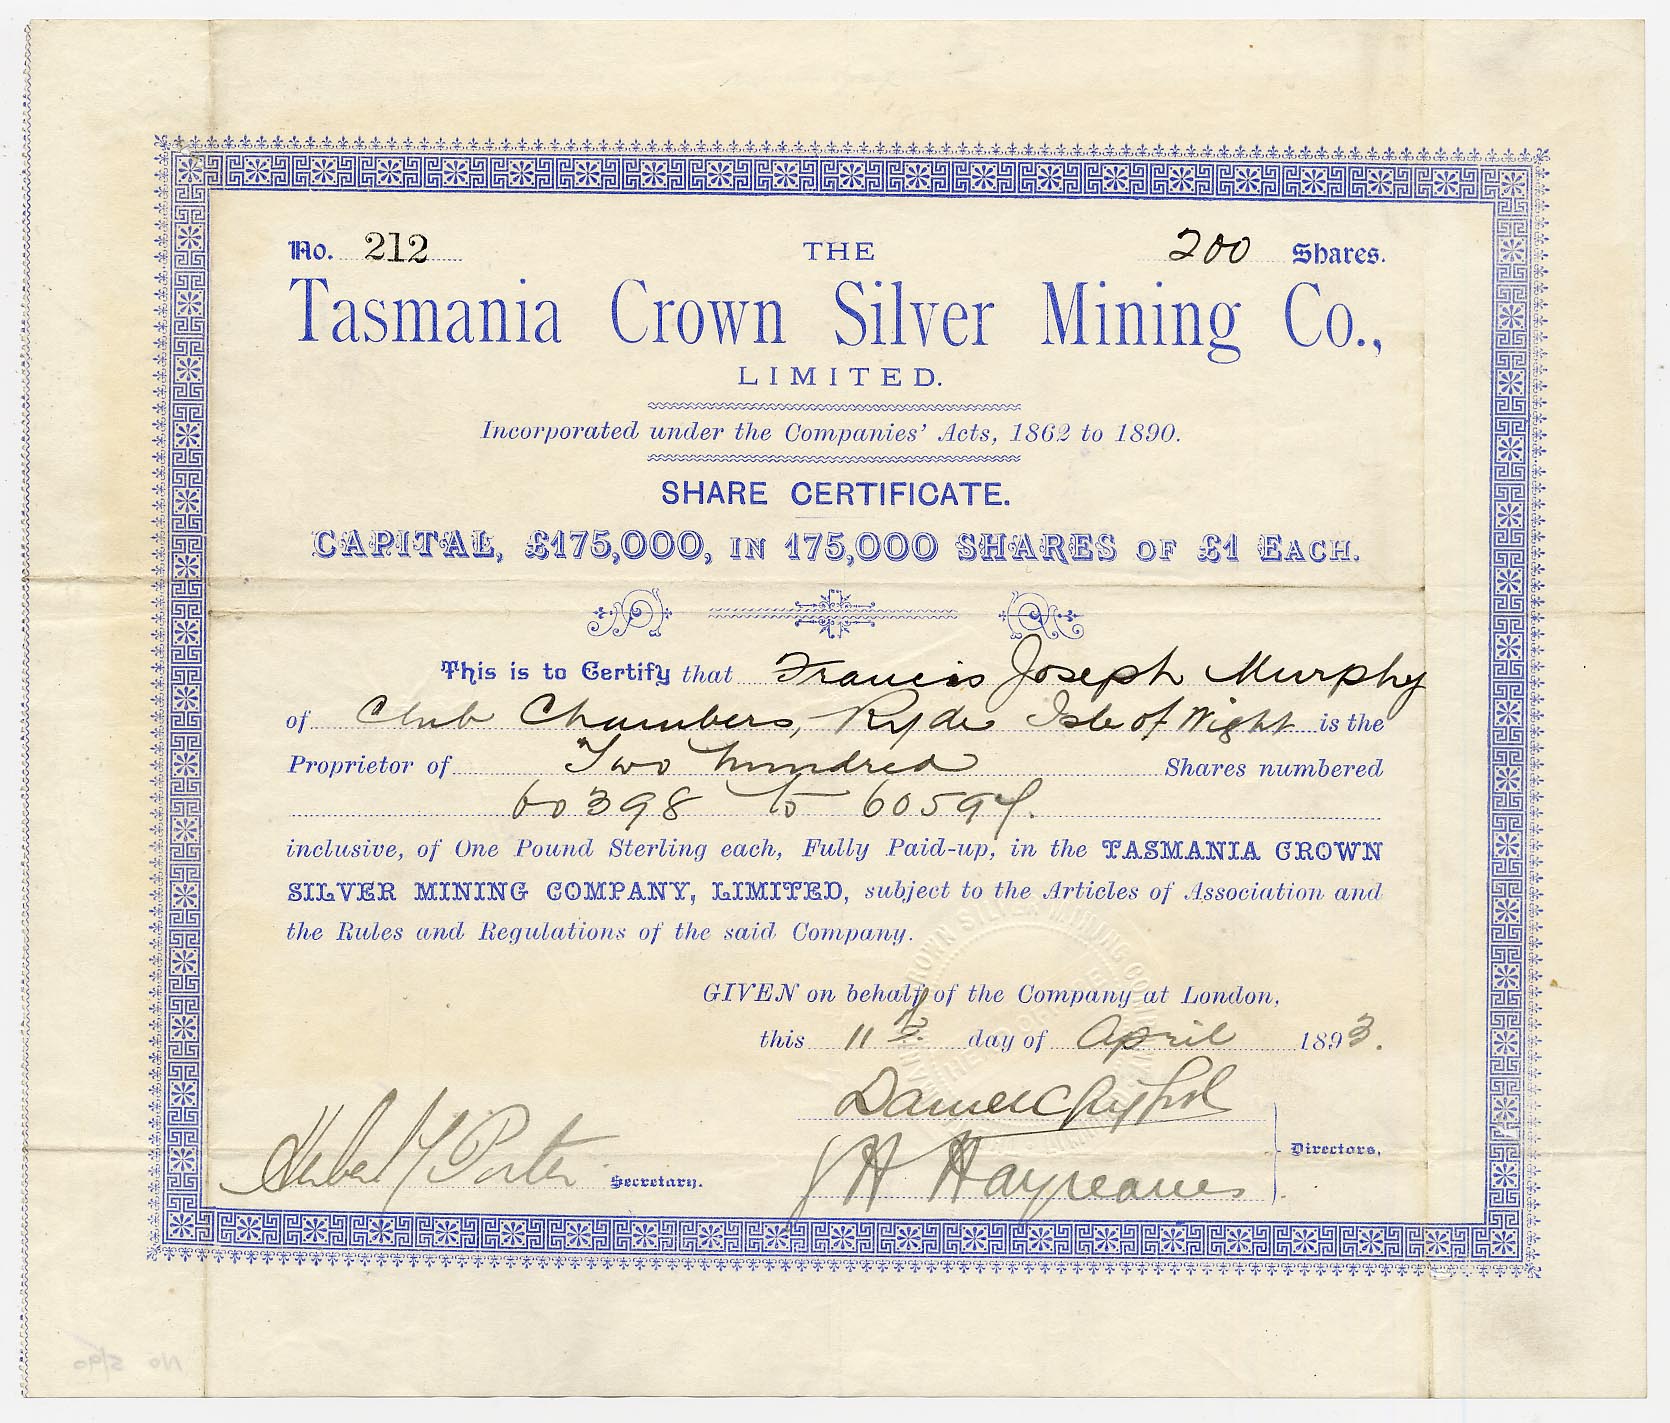 No. 212 THE 200 Shares.
Tasmania Crown Silver Mining Co.,
LIMITED.
Incorporated under the Companies' Acts, 1862 to 1890.
SHARE CERTIFICATE.
CAPITAL, £175,000, IN 175,000 SHARES OF £1 EACH.
This is to Certify that Francis Joseph Murphy
of Club Chambers, Ryde Isle of Wight is the
Proprietor of Two hundred Shares numbered
60398 to 60597.
inclusive, of One Pound Sterling each, Fully Paid-up, in the TASMANIA CROWN
SILVER MINING COMPANY, LIMITED, subject to the Articles of Association and
the Rules and Regulations of the said Company.
GIVEN on behalf of the Company at London,
this 11th day of April 1893.
Directors.
Porter Secretary.
J H
No 5/90